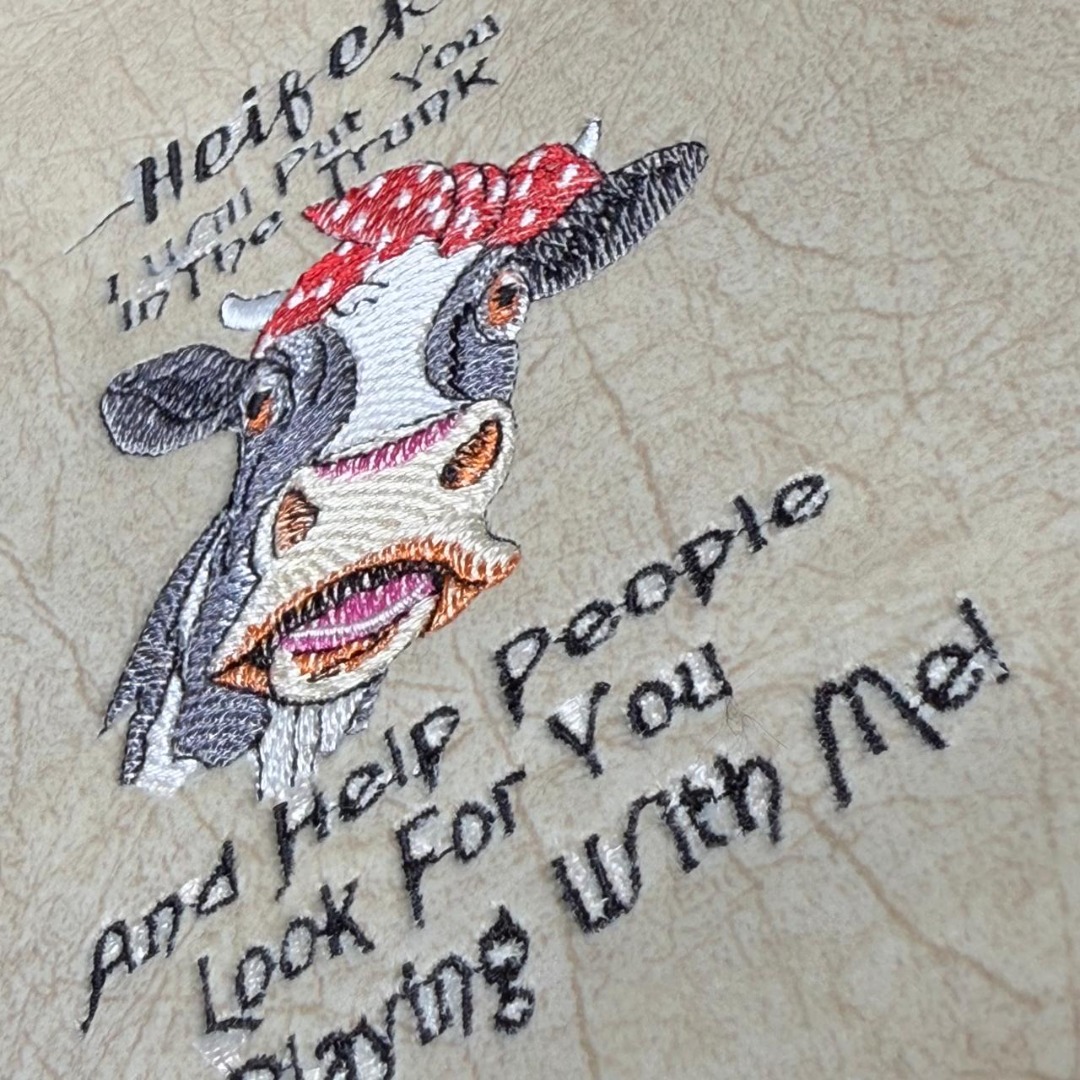 Heifer
I Will Put You
In The Trunk
And Help People
Look For You
Playing With Me!